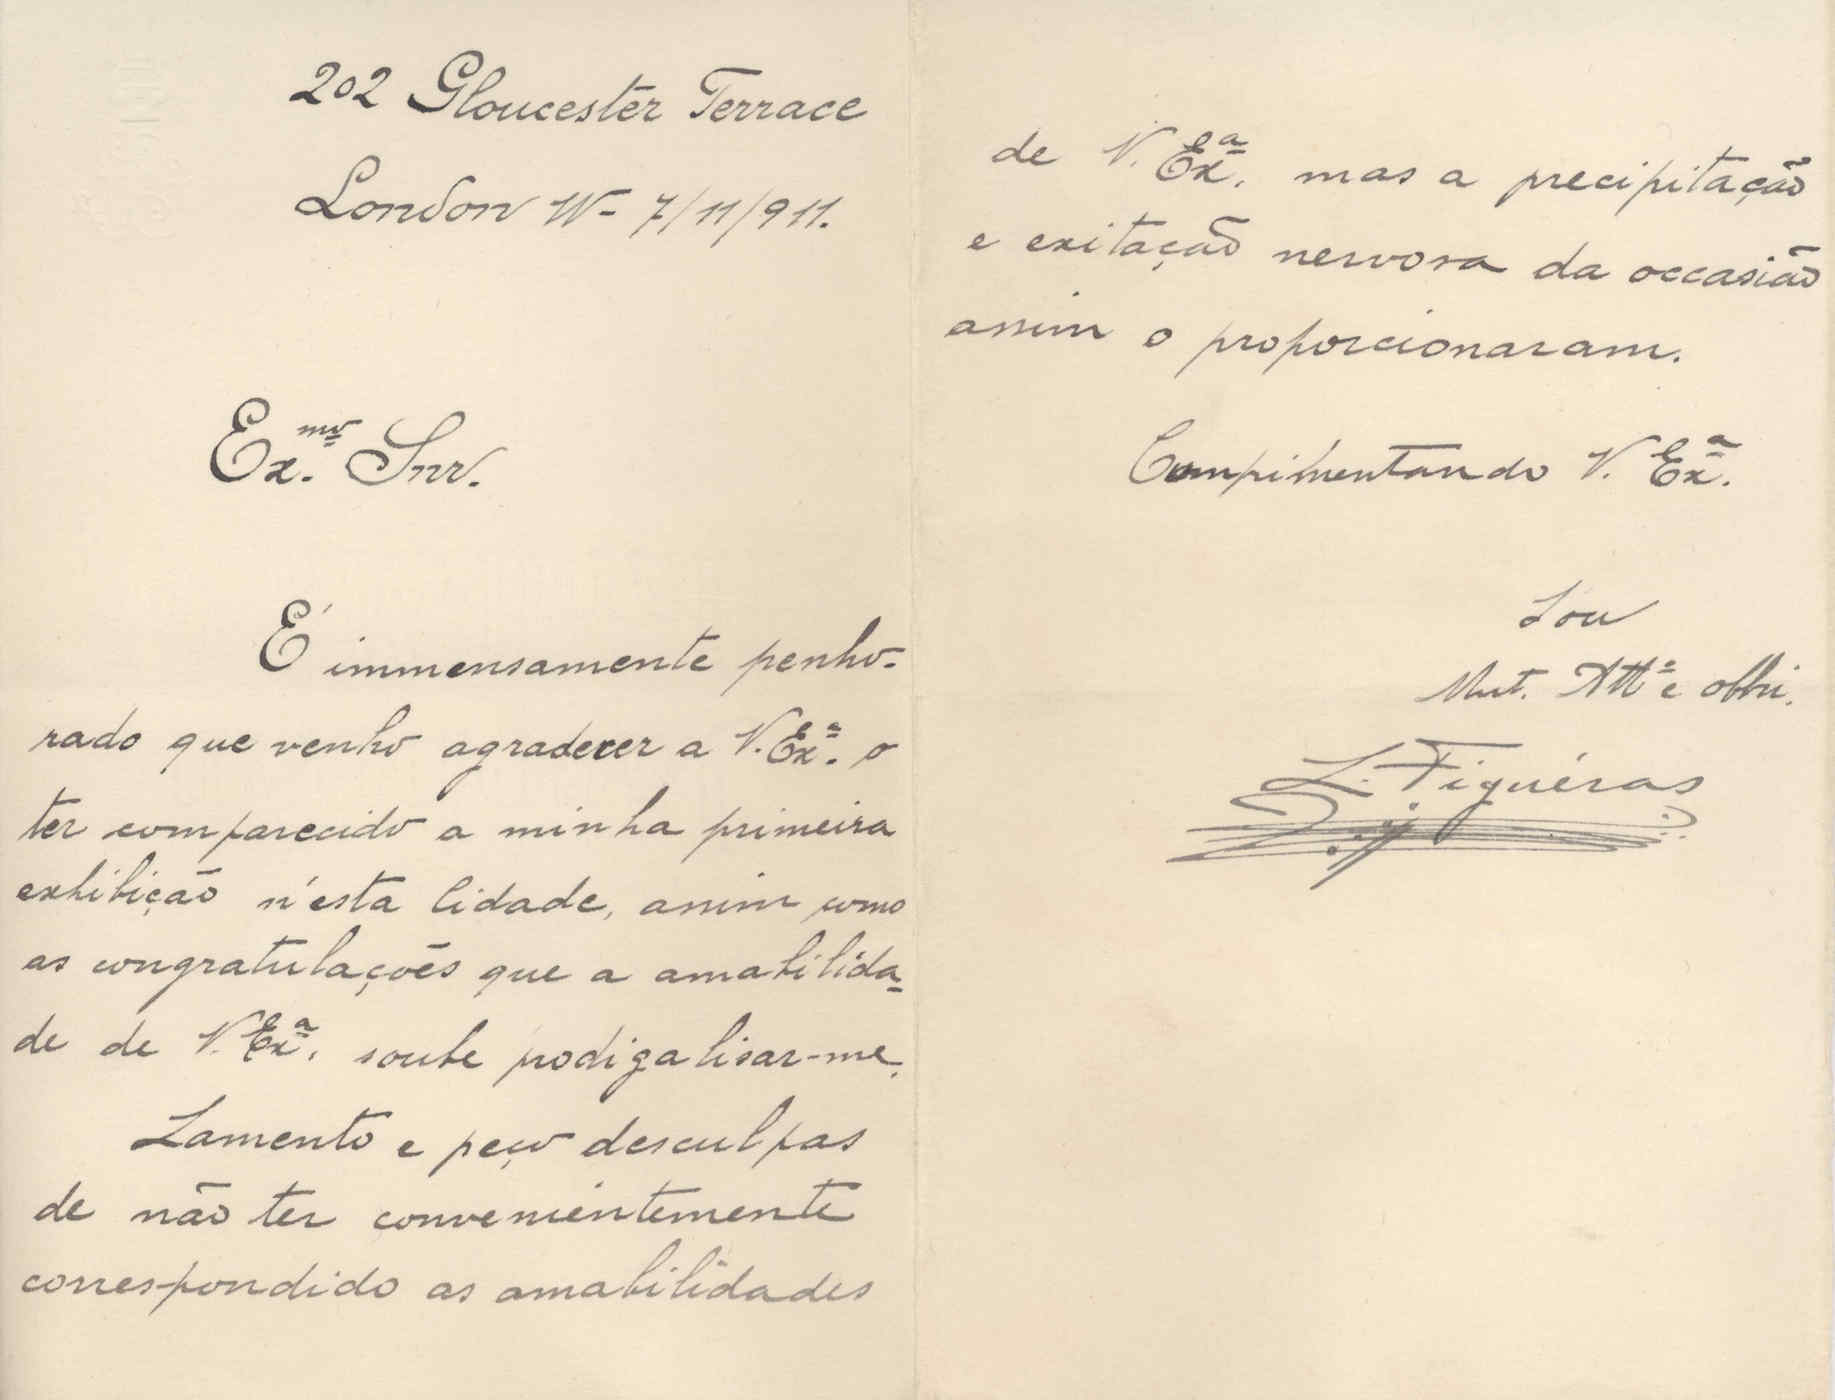 202 Gloucester Terrace
London W- 7/11/911.
Ex.mo Snr.
É immensamente penho-
rado que venho agradecer a V. Ex.ª o
ter comparecido a minha primeira
exhibição n'esta Cidade, assim como
as congratulações que a amabilida-
de de V. Ex.ª soube prodigalisar-me.
Lamento e peço desculpas
de não ter convenientemente
correspondido as amabilidades
de V. Exª. mas a precipitação
e exitação nervosa da occasião
assim o proporcionaram.
Compimentando V. Exª.
Sou
Mut. Attº e obbri.
L. Figuéras